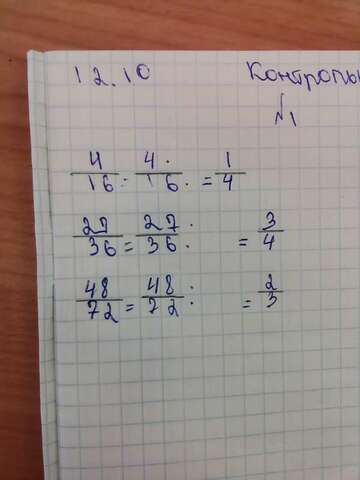 12.10 Контроль
№1
4/16 = 4·/16· = 1/4
27/36 = 27:/36: = 3/4
48/72 = 48:/72: = 2/3